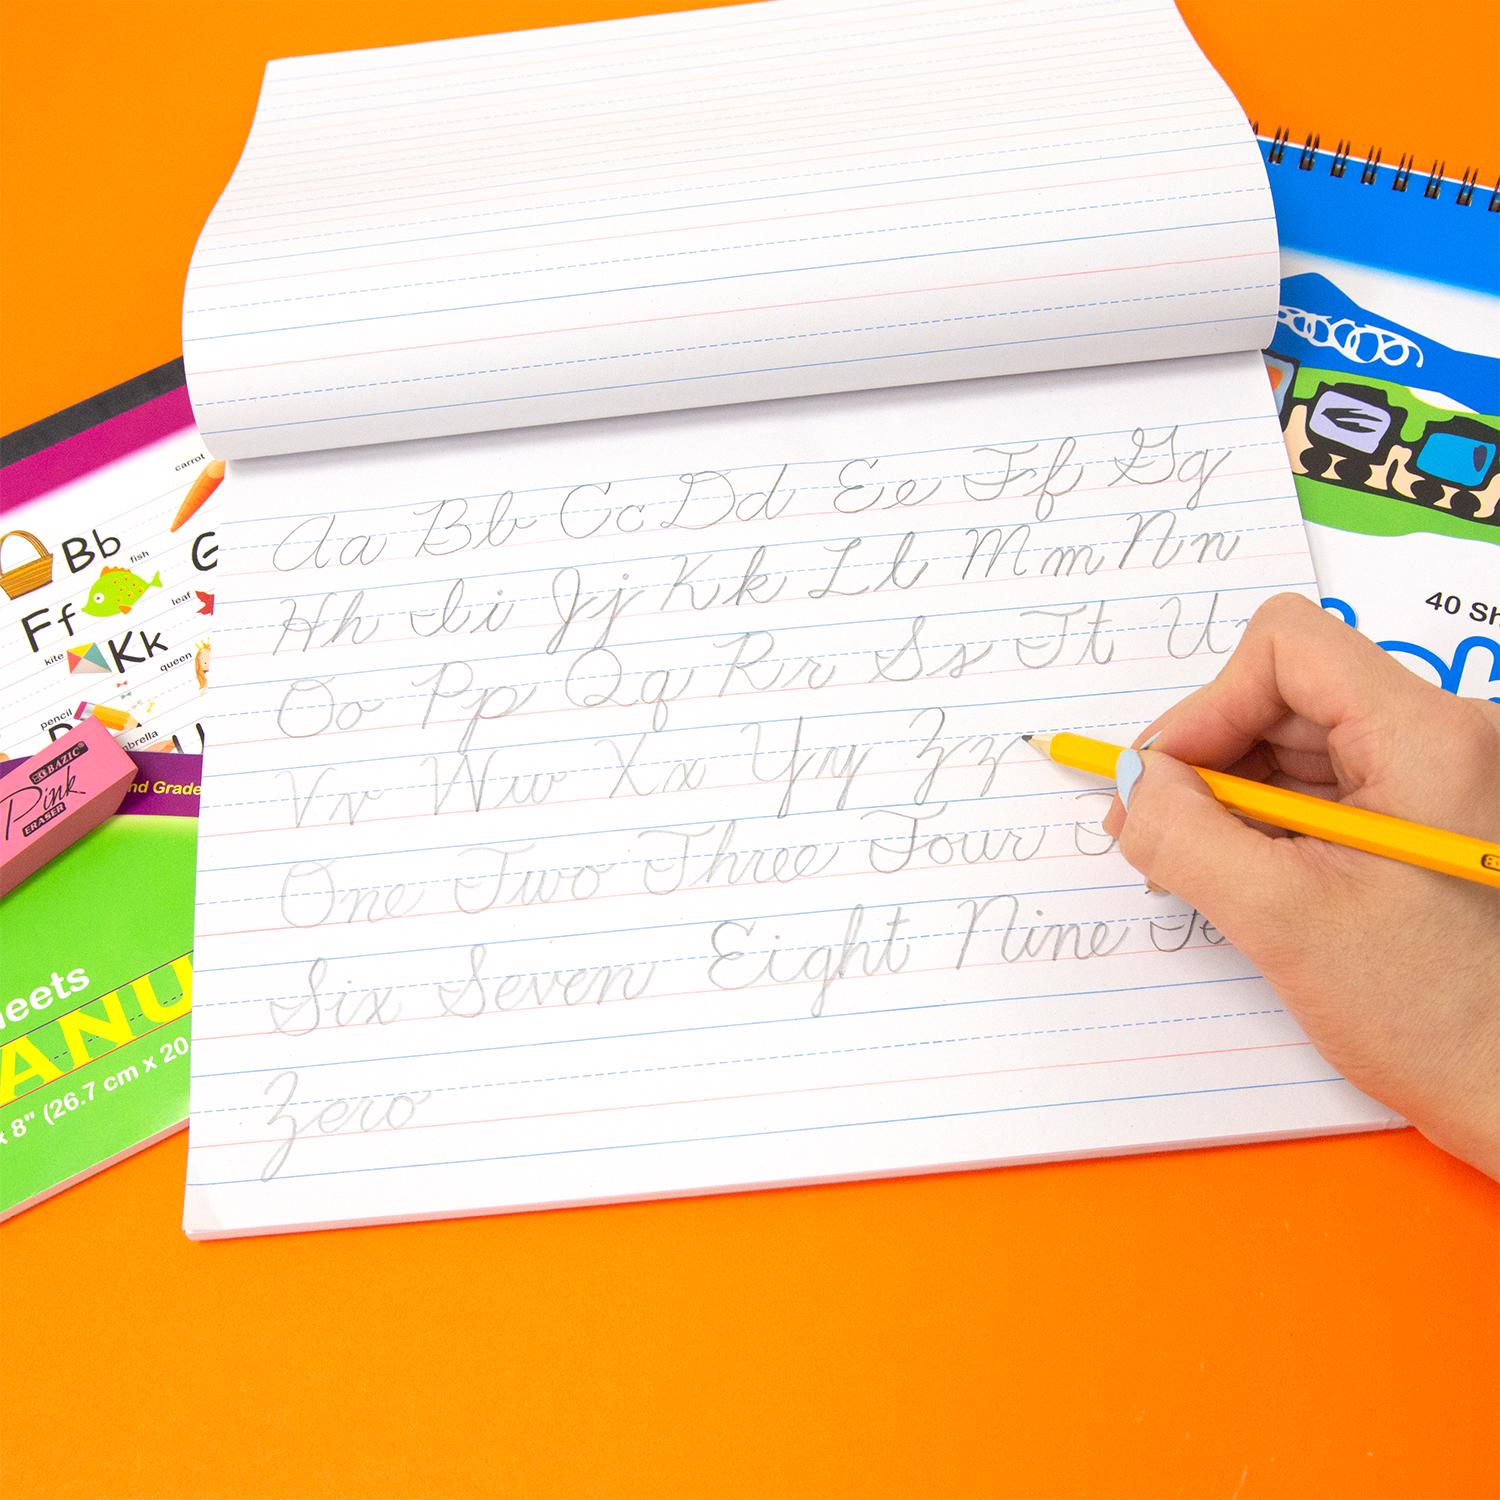 Aa Bb Cc Dd Ee Ff Gg
Hh Ii Jj Kk Ll Mm Nn
Oo Pp Qq Rr Ss Tt U
Vv Ww Xx Yy Zz
One Two Three Four
Six Seven Eight Nine Te
Zero
carrot
Bb
fish
G
Ff
leaf
kite
Kk
queen
pencil
BAZIC
Pink
ERASER
nd Grade
eets
ANU
x 8" (26.7 cm x 20
40 Sh